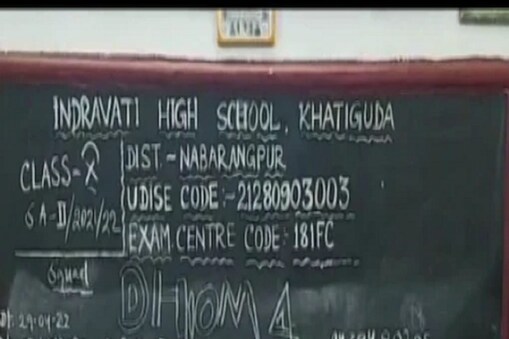 INDRAVATI HIGH SCHOOL, KHATIGUDA
DIST.- NABARANGPUR
CLASS-X
UDISE CODE:-21280903003
SA-II/2021/22
EXAM.CENTRE CODE:- 181FC
Squad
DHOOM 4
Dt: 29-04-22